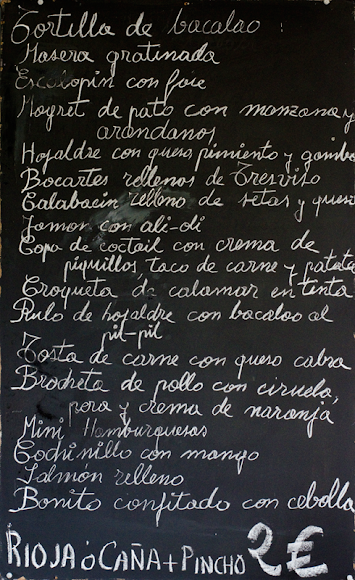 Tortilla de bacalao
Masera gratinada
Escalopin con foie
Magret de pato con manzana y
arandanos
Hojaldre con queso, pimiento y gamba
Bocartes rellenos de Tresviso
Calabacin relleno de setas y queso
Jamon con ali-oli
Copa de coctail con crema de
piquillos, taco de carne y patata
Croqueta de calamar en tinta
Rulo de hojaldre con bacalao al
pil-pil
Tosta de carne con queso cabra
Brocheta de pollo con ciruela,
pera y crema de naranja
Mini Hamburguesas
Cochinillo con mango
Salmón relleno
Bonito confitado con cebolla
RIOJA ó CAÑA + PINCHO 2€